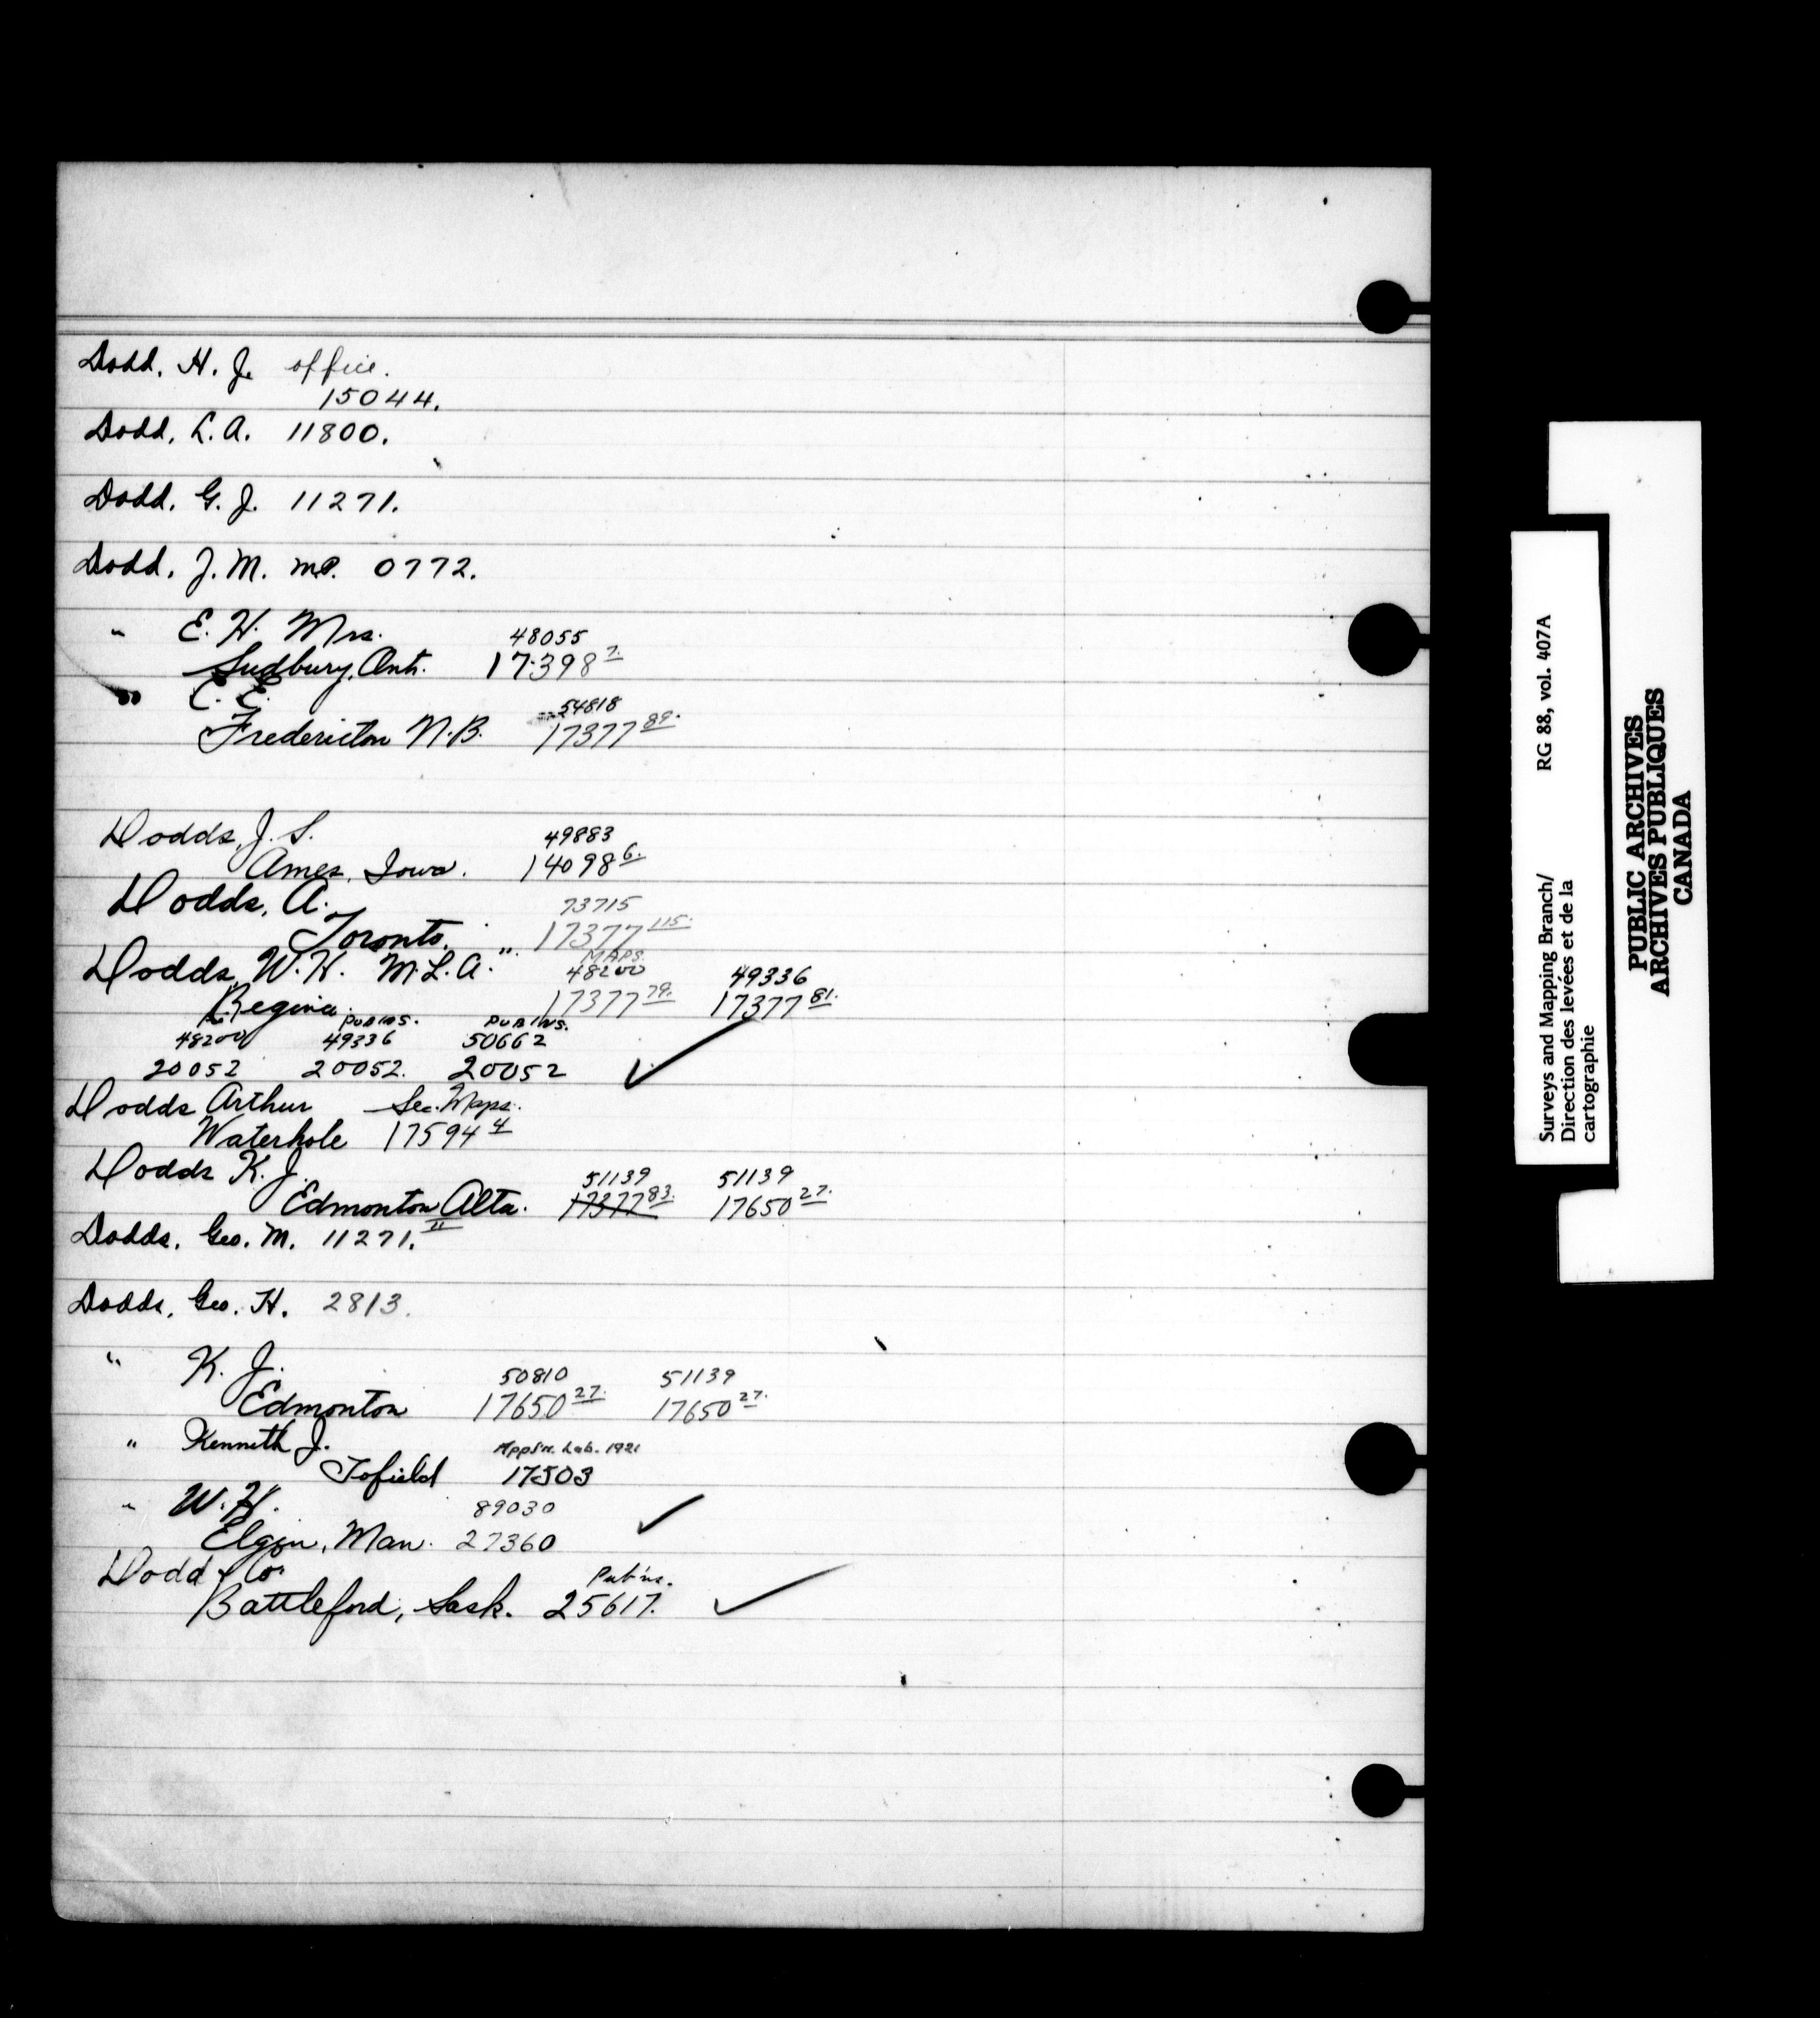 Dodd, H. J. office.
15044.
Dodd, L. A. 11800.
Dodd, G. J. 11271.
Dodd, J. M. M.P. 0772.
" E. H. Mrs. 48055
Sudbury, Ont. 17398 7.
" C. E. 54818
Fredericton N.B. 17377 89.
Dodds, J. S. 49883
Ames, Iowa. 14098 6.
Dodds, A. 73715
Toronto. " 17377 115.
Dodds, W. H. M.L.A. " MAPS. 48200 49336
Regina. 17377 79. 17377 81.
PUBINS. PUBINS.
48200 49336 50662
20052 20052. 20052
Dodds Arthur Sec. Maps.
Waterhole 17594 4
Dodds K. J. 51139 51139
Edmonton Alta. 17377 83. 17650 27.
Dodds, Geo. M. 11271. II
Dodds, Geo. H. 2813.
" K. J. 50810 51139
Edmonton 17650 27. 17650 27.
" Kenneth J. Appt'n. Lab. 1921
Tofield 17503
" W. H. 89030
Elgin, Man. 27360
Dodd & Co. Pub'ns.
Battleford, Sask. 25617.
Surveys and Mapping Branch/ RG 88, vol. 407A
Direction des levées et de la
cartographie
PUBLIC ARCHIVES
ARCHIVES PUBLIQUES
CANADA